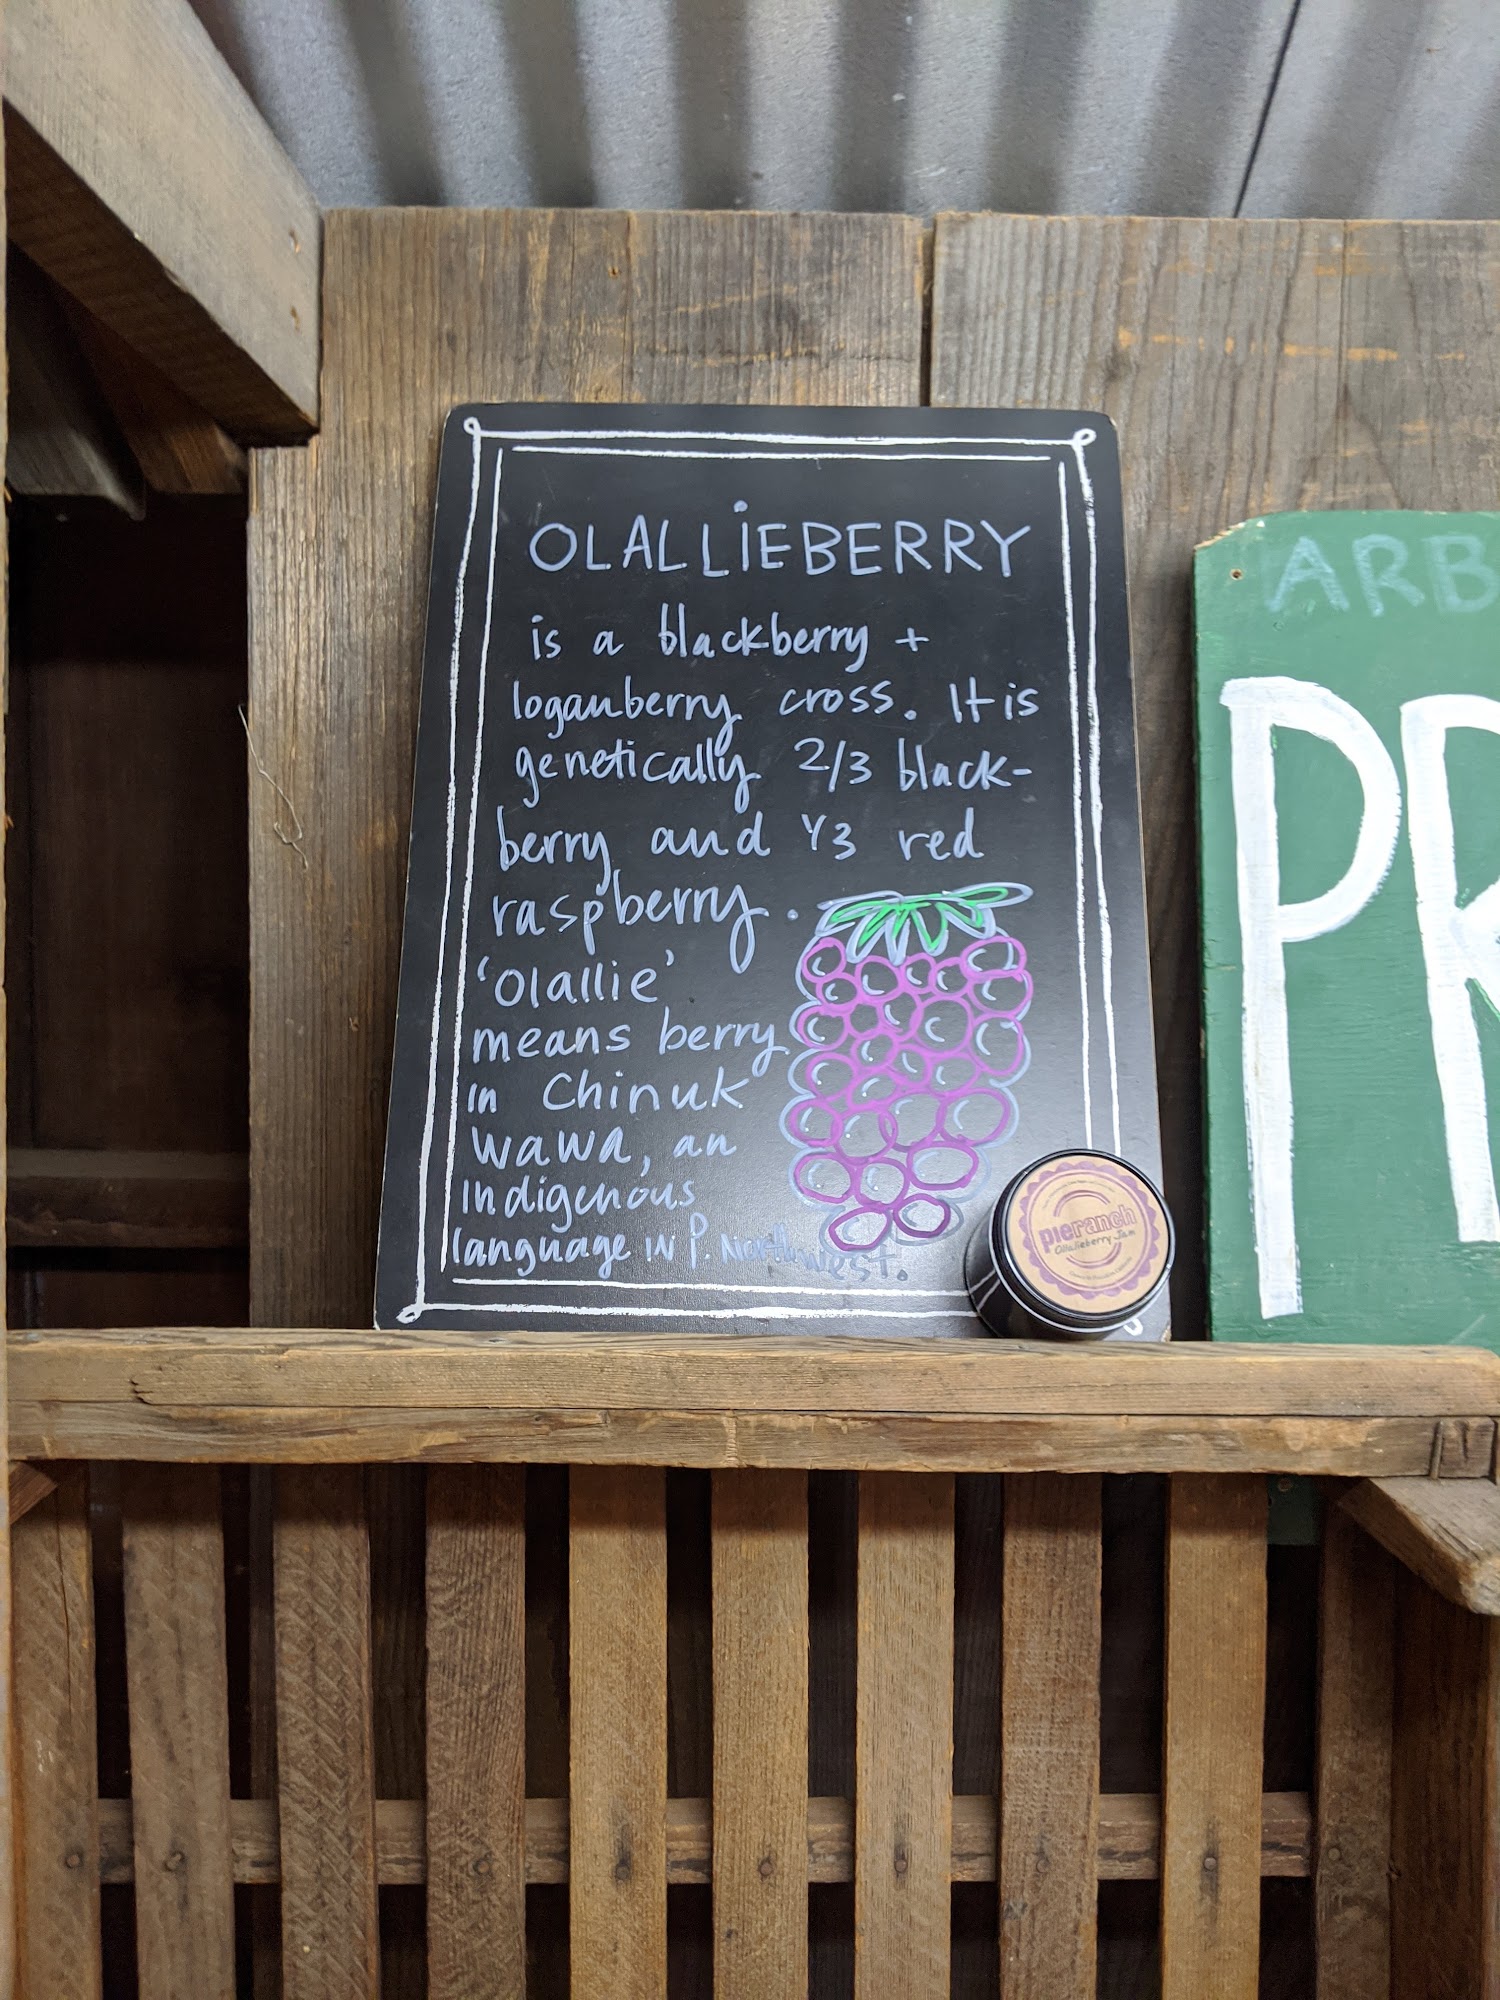 OLALLiEBERRY
is a blackberry +
loganberry cross. It is
genetically 2/3 black-
berry and 1/3 red
raspberry.
'Olallie'
means berry
in Chinuk
Wawa, an
Indigenous
language IN P. Northwest.
pieranch
Ollalieberry Jam
ARB
PR